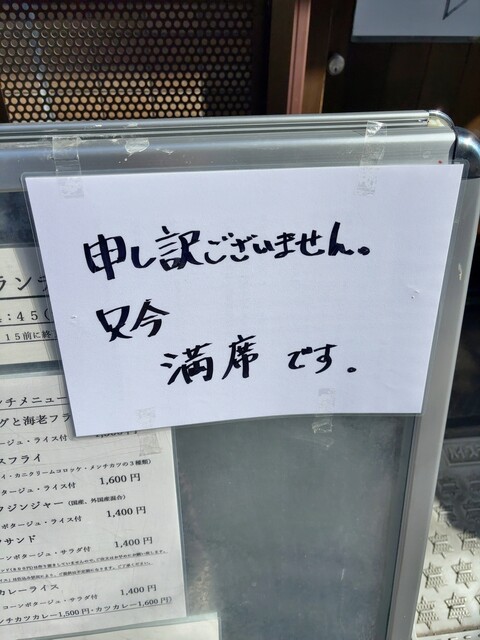 申し訳ございません。
只今
満席 です。
ランチ
:45(
15前に終
ンチメニュー
グと海老フラ
ージュ・ライス付
スフライ
イ・カニクリームコロッケ・メンチカツの3種類)
タージュ・ライス付 1,600円
クジンジャー (国産、外国産混合)
ポタージュ・ライス付 1,400円
ツサンド
ーンポタージュ・サラダ付 1,400円
カレーライス
コーンポタージュ・サラダ付 1,400円
ンチカツカレー1,500円・カツカレー1,600円)